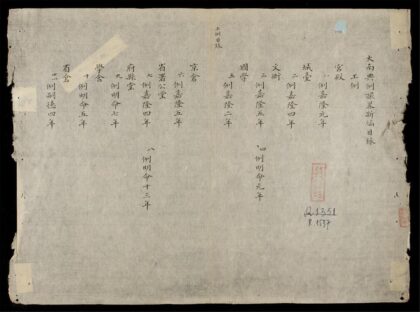 工例目錄
大南典例撮要新編目錄
工例
宮殿
一例嘉隆元年
城臺
二例嘉隆四年
文廟
三例嘉隆五年 四例明命元年
國學
五例嘉隆二年
京倉
六例嘉隆五年
省署公堂
七例嘉隆四年 八例明命十三年
府縣堂
九例明命七年
學舍
十例明命五年
省倉
十一例嗣德四年